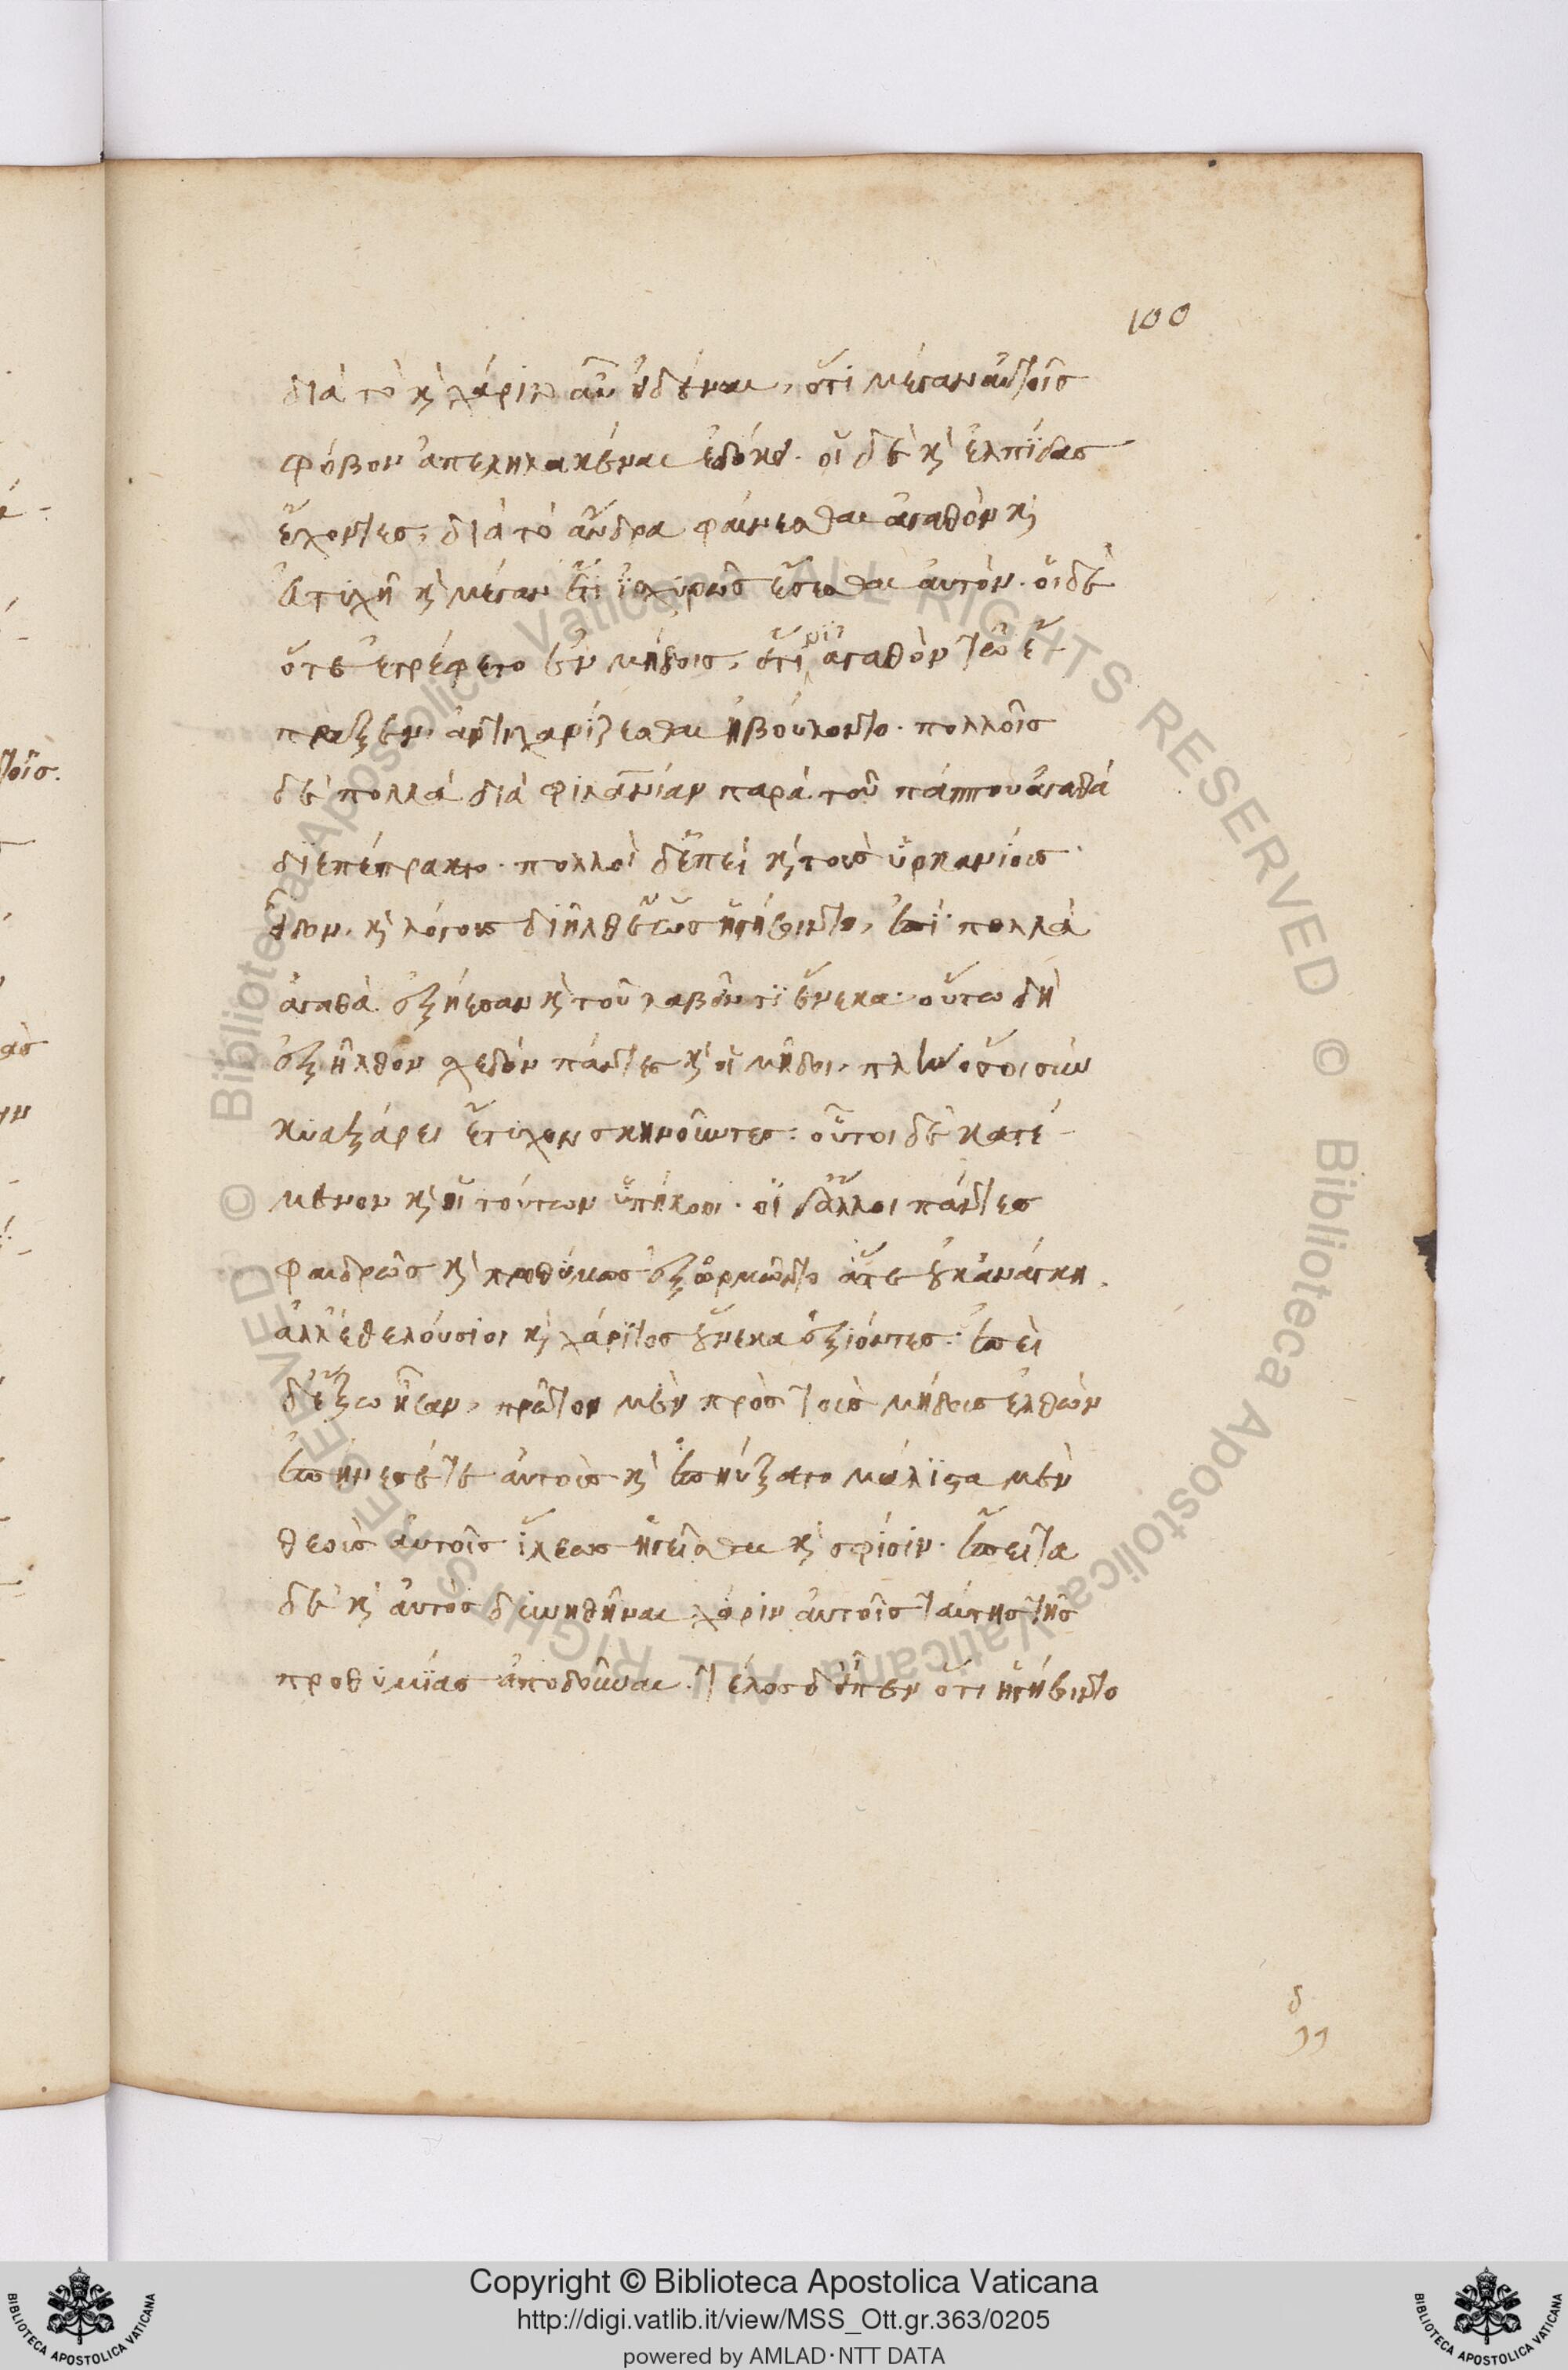 100
διὰ τὸ κ̀ χάριν ἂν εἰδέναι, ὅτι μέγαν αὐτοῖς
φόβον ἀπεληλακέναι ἐδόκει. οἱ δὲ κ̀ ἐλπίδας
ἔχοντες, διὰ τὸ ἄνδρα φαίνεσθαι ἀγαθὸν κ̀
εὐτυχῆ κ̀ μέγαν ἔτι ἰσχυρῶς ἔσεσθαι αὐτόν. οἱ δὲ
ὅτε ἐτρέφετο ἐν μήδοις, ἔτι ἀγαθόν τω ἔ-
πραξεν ἀντιχαρίζεσθαι ἠβούλοντο. πολλοῖς
δὲ πολλὰ διὰ φιλανίαν παρὰ τοῦ πάππου ἀγαθὰ
διεπέπρακτο. πολλοὶ δ' ἐπεὶ κ̀ τοὺς ὑρκανίους
εἶδον, κ̀ λόγους διῆλθεν ὡς ἡγήσοιντο, ἐπὶ πολλὰ
ἀγαθὰ ἐξῄεσαν κ̀ τοῦ λαβεῖν τὶ ἕνεκα. οὕτω δὴ
ἐξῆλθον σχεδὸν πάντες κ̀ οἱ μῆδοι, πλὴν ὅσοι σὺν
κυαξάρει ἔτυχον σκηνοῦντες: οὗτοι δὲ κατέ-
μενον κ̀ οἱ τούτων ὑπήκοοι. οἱ δ' ἄλλοι πάντες
φαιδρῶς κ̀ προθύμως ἐξωρμῶντο ἅτε οὐκ ἀνάγκη.
ἀλλ' ἐθελούσιοι κ̀ χάριτος ἕνεκα ἐξιόντες. ἐπεὶ
δ' ἔξω ἦσαν, πρῶτον μὲν πρὸς τοὺς μήδους ἐλθὼν
ἐπῄνεσέ τε αὐτοὺς κ̀ ἐπηύξατο μάλιστα μὲν
θεοὺς αὐτοῖς ἵλεως ἡγεῖσθαι κ̀ σφίσιν. ἔπειτα
δὲ κ̀ αὐτὸς δυνηθῆναι χάριν αὐτοῖς ταύτης τῆς
προθυμίας ἀποδοῦναι. τέλος δ' εἶπεν ὅτι ἡγήσοιντο
Copyright © Biblioteca Apostolica Vaticana
http://digi.vatlib.it/view/MSS_Ott.gr.363/0205
powered by AMLAD·NTT DATA